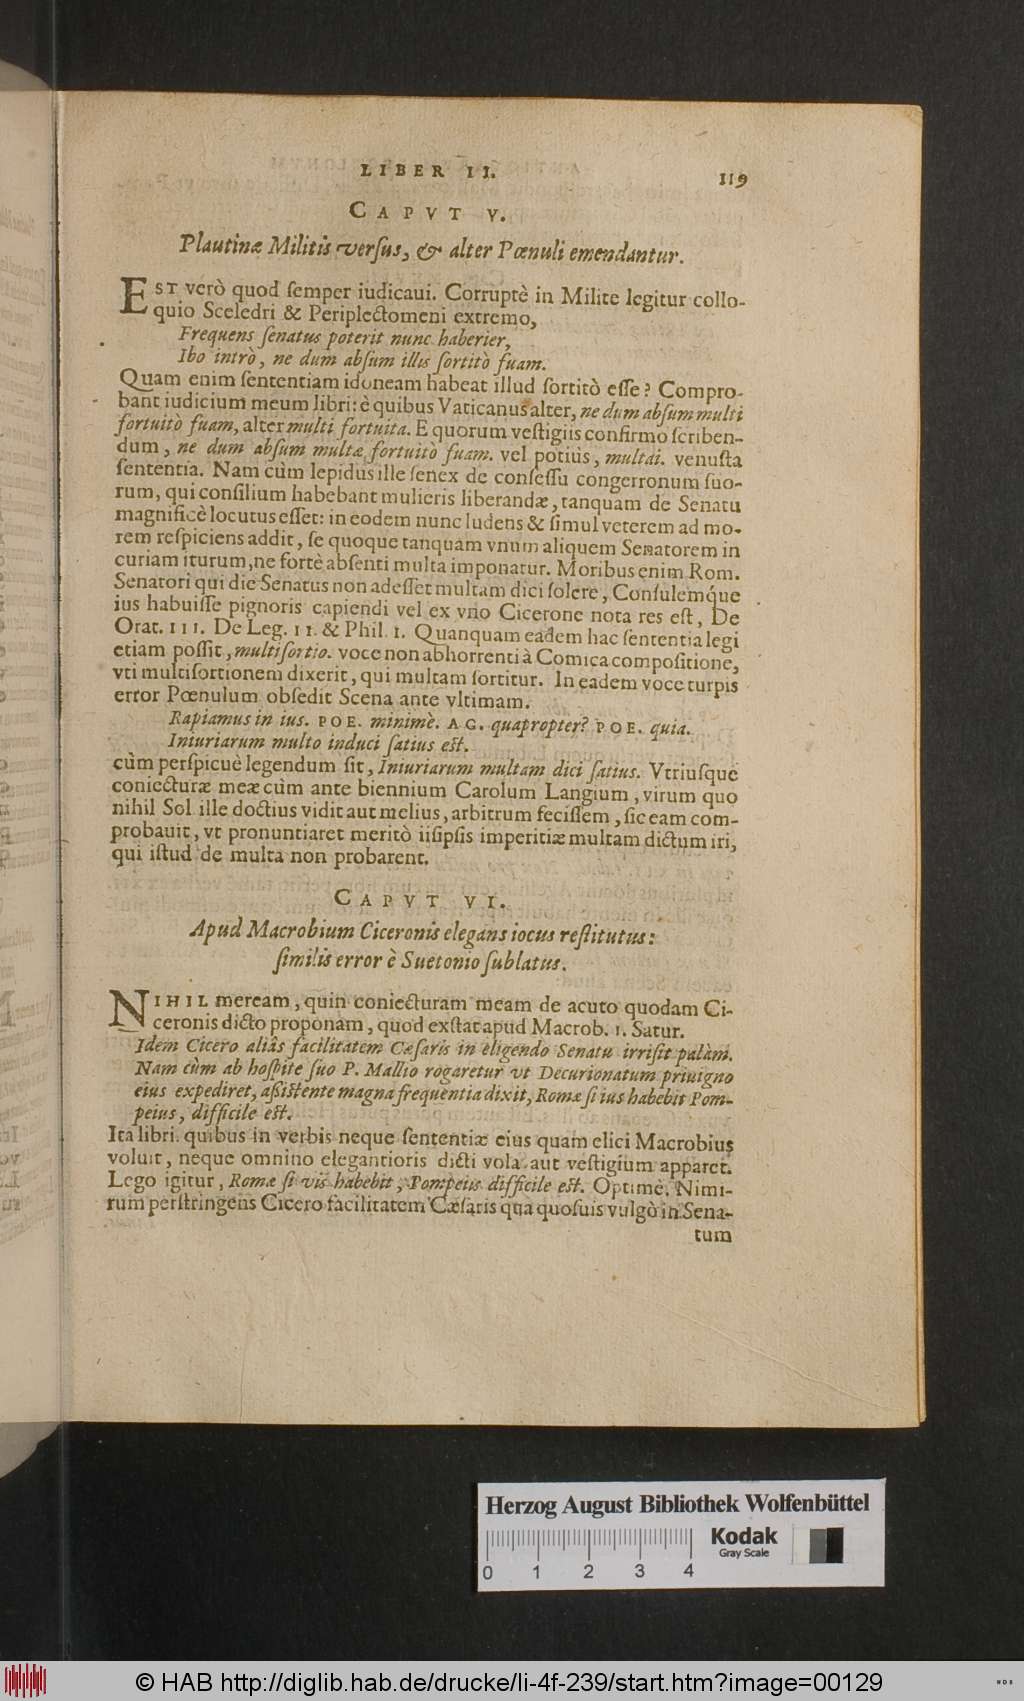 LIBER II. 119
CAPVT V.
Plautinæ Militis versus, & alter Pœnuli emendantur.
EST verò quod semper iudicaui. Corruptè in Milite legitur collo-
quio Sceledri & Periplectomeni extremo,
Frequens senatus poterit nunc haberier,
Ibo intrò, ne dum absum illis sortitò fuam.
Quam enim sententiam idoneam habeat illud sortitò esse? Compro-
bant iudicium meum libri: è quibus Vaticanus alter, ne dum absum multi
fortuitò fuam, alter multi fortuita. E quorum vestigiis confirmo scriben-
dum, ne dum absum multæ fortuitò fuam. vel potiùs, multai. venusta
sententia. Nam cùm lepidus ille senex de consessu congerronum suo-
rum, qui consilium habebant mulieris liberandæ, tanquam de Senatu
magnificè locutus esset: in eodem nunc ludens & simul veterem ad mo-
rem respiciens addit, se quoque tanquam vnum aliquem Senatorem in
curiam iturum, ne fortè absenti multa imponatur. Moribus enim Rom.
Senatori qui die Senatus non adesset multam dici solere, Consulemque
ius habuisse pignoris capiendi vel ex vno Cicerone nota res est, De
Orat. III. De Leg. II. & Phil. I. Quanquam eadem hac sententia legi
etiam possit, multi sortio. voce non abhorrenti à Comica compositione,
vti multisortionem dixerit, qui multam sortitur. In eadem voce turpis
error Pœnulum obsedit Scena ante vltimam.
Rapiamus in ius. POE. minimè. AG. quapropter? POE. quia.
Iniuriarum multo induci satius est.
cùm perspicuè legendum sit, Iniuriarum multam dici satius. Vtriusque
coniecturæ meæ cùm ante biennium Carolum Langium, virum quo
nihil Sol ille doctius vidit aut melius, arbitrum fecissem, sic eam com-
probauit, vt pronuntiaret meritò iis ipsis imperitiæ multam dictum iri,
qui istud de multa non probarent.
CAPVT VI.
Apud Macrobium Ciceronis elegans iocus restitutus:
similis error è Suetonio sublatus.
NIHIL meream, quin coniecturam meam de acuto quodam Ci-
ceronis dicto proponam, quod exstat apud Macrob. I. Satur.
Idem Cicero aliàs facilitatem Cæsaris in eligendo Senatu irrisit palàm.
Nam cùm ab hospite suo P. Mallio rogaretur vt Decurionatum priuigno
eius expediret, assistente magna frequentia dixit, Romæ si ius habebit Pom-
peius, difficile est.
Ita libri. quibus in verbis neque sententiæ eius quam elici Macrobius
voluit, neque omnino elegantioris dicti vola aut vestigium apparet.
Lego igitur, Romæ si vis habebit, Pompeiis difficile est. Optimè. Nimi-
rum perstringens Cicero facilitatem Cæsaris qua quosuis vulgò in Sena-
tum
Herzog August Bibliothek Wolfenbüttel
0 1 2 3 4
Kodak
Gray Scale
© HAB http://diglib.hab.de/drucke/li-4f-239/start.htm?image=00129